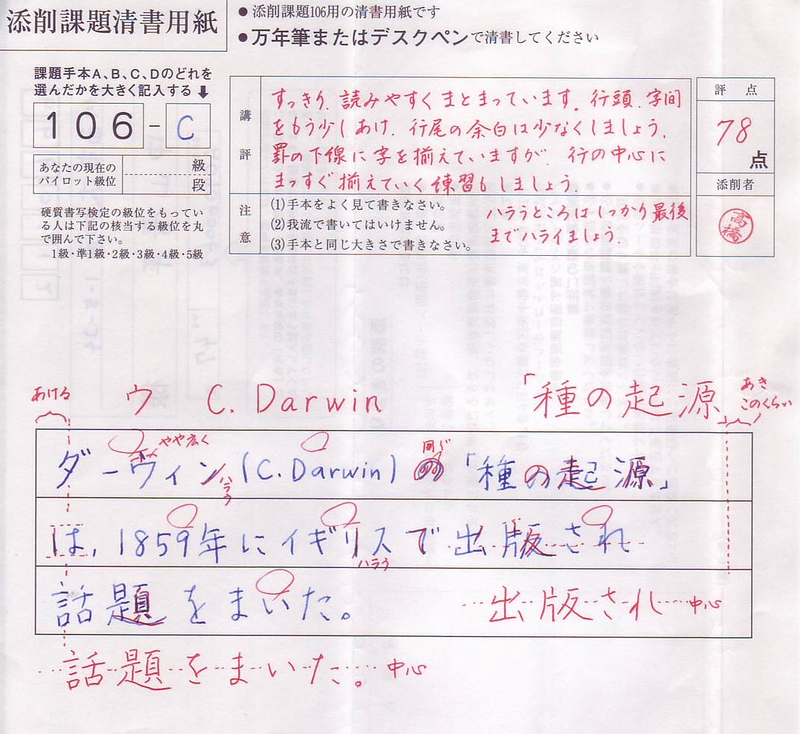 添削課題清書用紙
●添削課題106用の清書用紙です
●万年筆またはデスクペンで清書してください
課題手本A、B、C、Dのどれを
選んだかを大きく記入する
106-C
あなたの現在の
パイロット級位
級
段
硬質書写検定の級位をもってい
る人は下記の該当する級位を丸
で囲んで下さい。
1級・準1級・2級・3級・4級・5級
講評
すっきり、読みやすくまとまっています。行頭、字間
をもう少しあけ、行尾の余白は少なくしましょう。
罫の下線に字を揃えていますが、行の中心に
まっすぐ揃えていく練習もしましょう。
注意
(1)手本をよく見て書きなさい。
(2)我流で書いてはいけません。
(3)手本と同じ大きさで書きなさい。
ハラうところはしっかり最後
までハライましょう。
評点
78点
添削者
高橋
あける
ウ C. Darwin 「種の起源
あき
このくらい
やや広く
同じ
ダーウィン(C.Darwin)の「種の起源」
ハラウ
は、1859年にイギリスで出版され
ハラウ
話題をまいた。
出版され 中心
話題をまいた。 中心